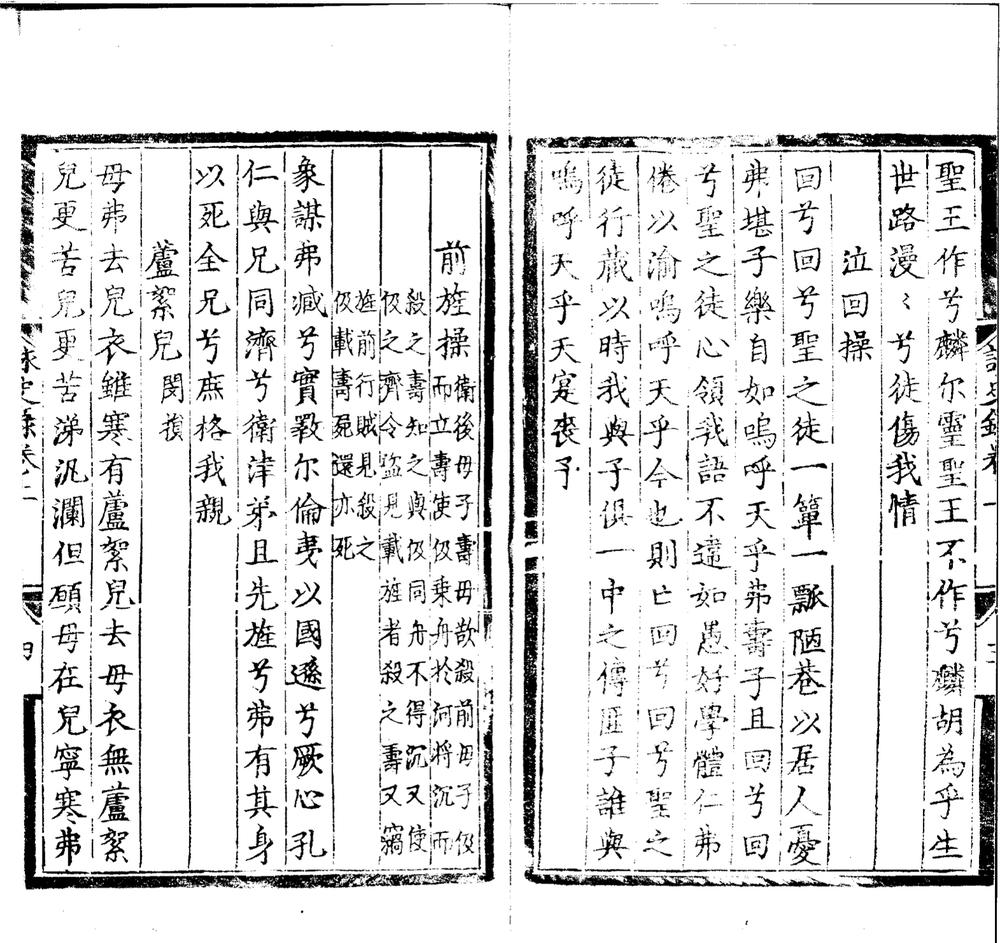 聖王作兮麟尔靈聖王不作兮麟胡為乎生
世路漫〻兮徒傷我情
泣回操
回兮回兮聖之徒一簞一瓢陋巷以居人憂
弗堪子樂自如嗚呼天乎弗壽子且回兮回
兮聖之徒心領我語不違如愚好學體仁弗
倦以渝嗚呼天乎今也則亡回兮回兮聖之
徒行藏以時我與子俱一中之傳匪子誰與
嗚呼天乎天寔喪予
前旌操
衛後母子壽母欲殺前母子伋
而立壽使伋乘舟於河將沉而
殺之壽知之與伋同舟不得沉又使
伋之齊令盜見載旌者殺之壽又竊
旌前行賊見殺之
伋載壽屍還亦死
象謀弗臧兮實斁尔倫夷以國遜兮厥心孔
仁與兄同濟兮衛津弟且先旌兮弗有其身
以死全兄兮庶格我親
蘆絮兒
閔損
母弗去兒衣雖寒有蘆絮兒去母衣無蘆絮
兒更苦兒更苦涕汍瀾但願母在兒寧寒弗
詠史錄卷一
三
四